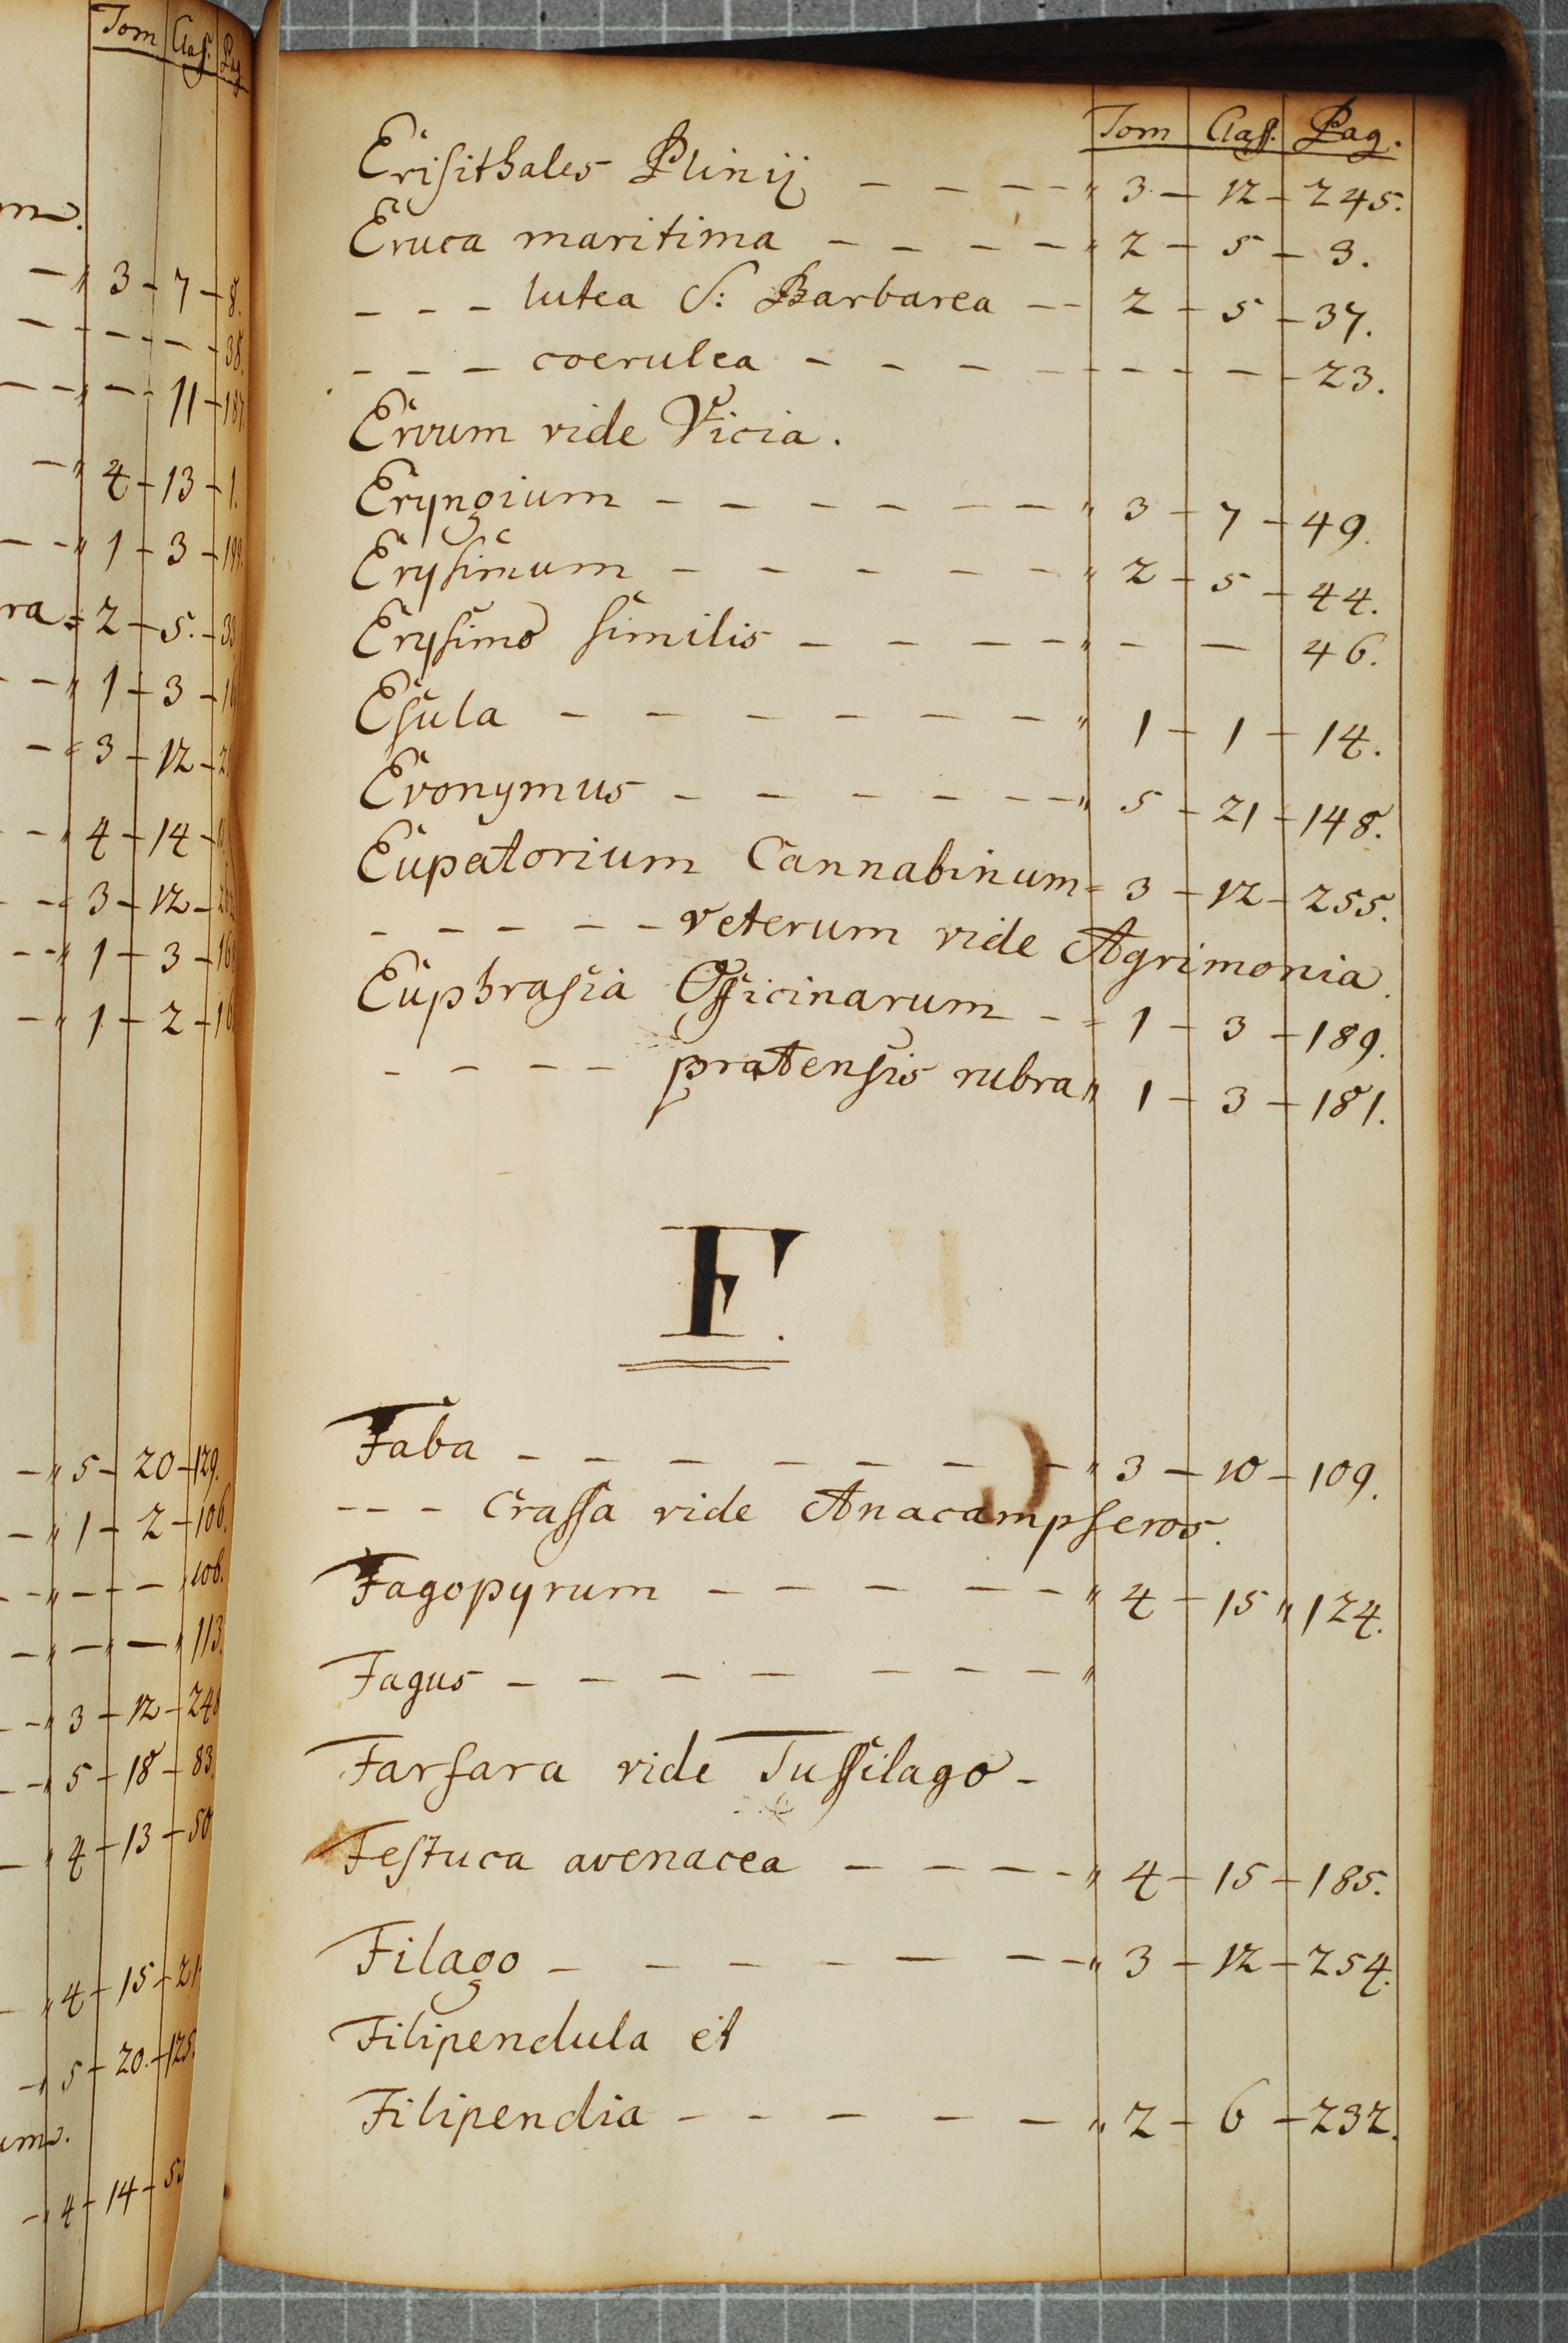 Tom Class. Pag
m.
— " 3 — 7 — 8.
— — — — 38.
— — " — 11 — 187.
— " 4 — 13 — 1.
— — " 1 — 3 — 199.
ra = 2 — 5. —
— — " 1 — 3 —
— = 3 — 12 —
— — " 4 — 14 —
— — = 3 — 12 —
— — " 1 — 3 —
— " 1 — 2 —
— " 5 — 20 — 129.
— " 1 — 2 — 106.
— — " — — — " 108.
— " — — " 113.
— — " 3 — 12 — 248
— — " 5 — 18 — 83.
— " 4 — 13 — 50
— " 4 — 15 — 21
— " 5 — 20. — 125.
um.
— " 4 — 14 —
Tom Class. Pag.
Erisithales Plinij — — — — " 3 — 12 — 245.
Eruca maritima — — — — " 2 — 5 — 3.
— — — lutea S: Barbarea — — 2 — 5 — 37.
— — — coerulea — — — — — — — — 23.
Ervum vide Vicia.
Eryngium — — — — — — " 3 — 7 — 49.
Erysimum — — — — — " 2 — 5 — 44.
Erysimo similis — — — — " — — 46.
Esula — — — — — — " 1 — 1 — 14.
Evonymus — — — — — — " 5 — 21 — 148.
Eupatorium Cannabinum = 3 — 12 — 255.
— — — — — veterum vide Agrimonia.
Euphrasia Officinarum — = 1 — 3 — 189.
— — — — pratensis rubra " 1 — 3 — 181.
F.
Faba — — — — — — — " 3 — 10 — 109.
— — — Crassa vide Anacampseros.
Fagopyrum — — — — — " 4 — 15 " 124.
Fagus — — — — — — — "
Farfara vide Tussilago —
Festuca avenacea — — — — " 4 — 15 — 185.
Filago — — — — — — — " 3 — 12 — 254.
Filipendula et
Filipendia — — — — — " 2 — 6 — 232.